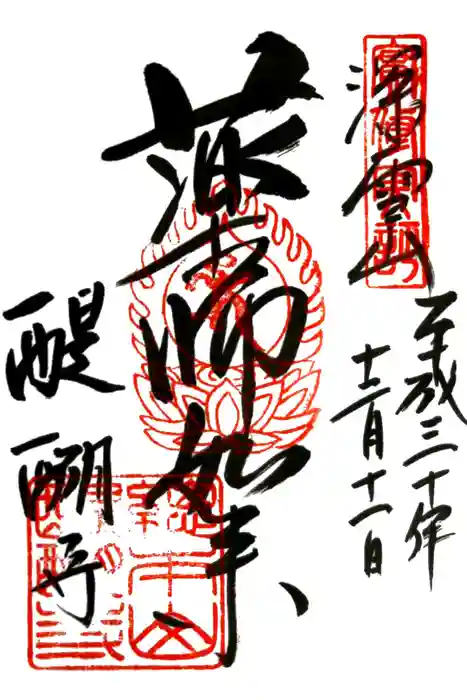 深雪山
平成三十年
十二月十一日
薬師如来
醍醐寺